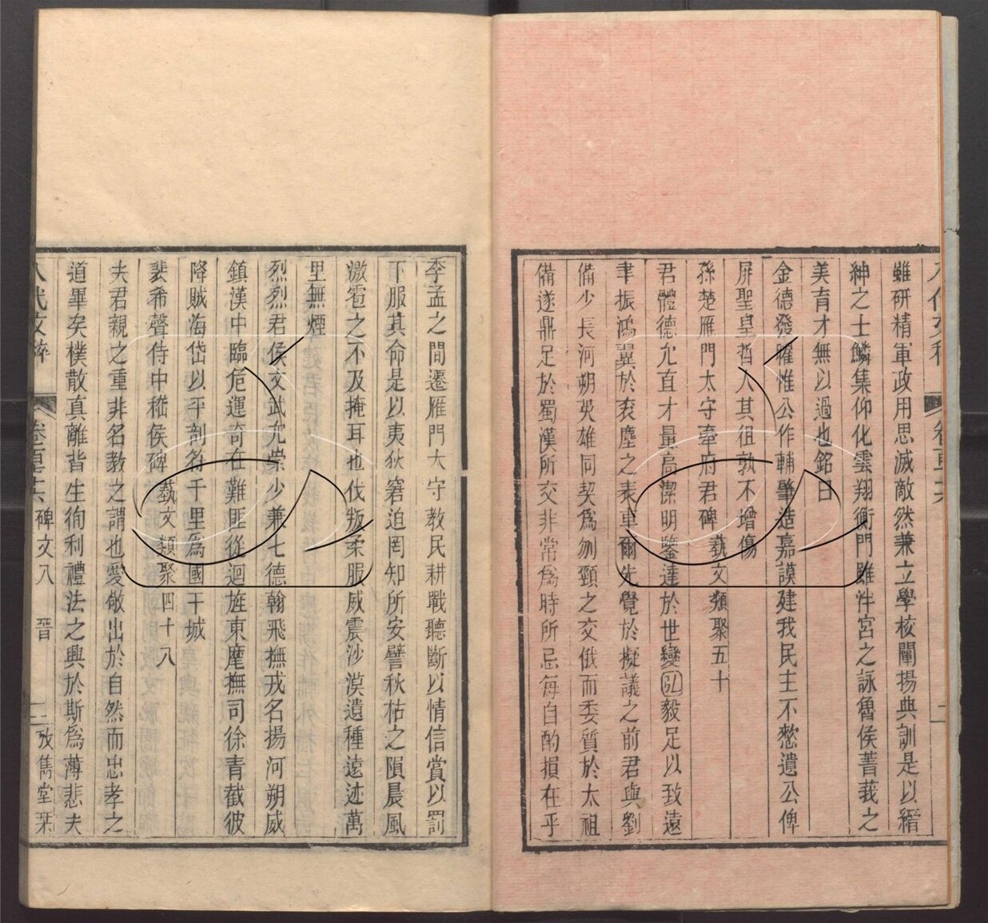 雖研精軍政用思滅敵然兼立學校闡揚典訓是以縉
紳之士鱗集仰化雲翔衡門雖泮宮之詠魯侯菁莪之
美育才無以過也銘曰
金德發暉惟公作輔肇造嘉謨建我民主不憖遺公俾
屏聖皇哲人其徂孰不增傷
孫楚雁門太守牽府君碑 藝文類聚五十
君體德允直才量高潔明鑒達於世變弘毅足以致遠
聿振鴻翼於衮塵之表車爾先覺於擬議之前君與劉
備少長河朔英雄同契為刎頸之交俄而委質於太祖
備遂鼎足於蜀漢所交非常為時所忌每自酌損在乎
季孟之間遷雁門大守教民耕戰聽斷以情信賞以罰
下服其命是以夷狄窘迫罔知所安譬秋枯之隕晨風
激雹之不及掩耳也伐叛柔服威震沙漠遺種遠迹萬
里無煙
烈烈君侯文武允崇少兼七德翰飛撫戎名揚河朔威
鎮漢中臨危運奇在難匪從迴旌東麾撫司徐青截彼
降賊海岱以平剖符千里為國干城
裴希聲侍中嵇侯碑 藝文類聚四十八
夫君親之重非名教之謂也愛敬出於自然而忠孝之
道畢矣樸散真離背生徇利禮法之興於斯為薄悲夫
八代文粹 卷 碑文八 晉 二 攷雋堂栞